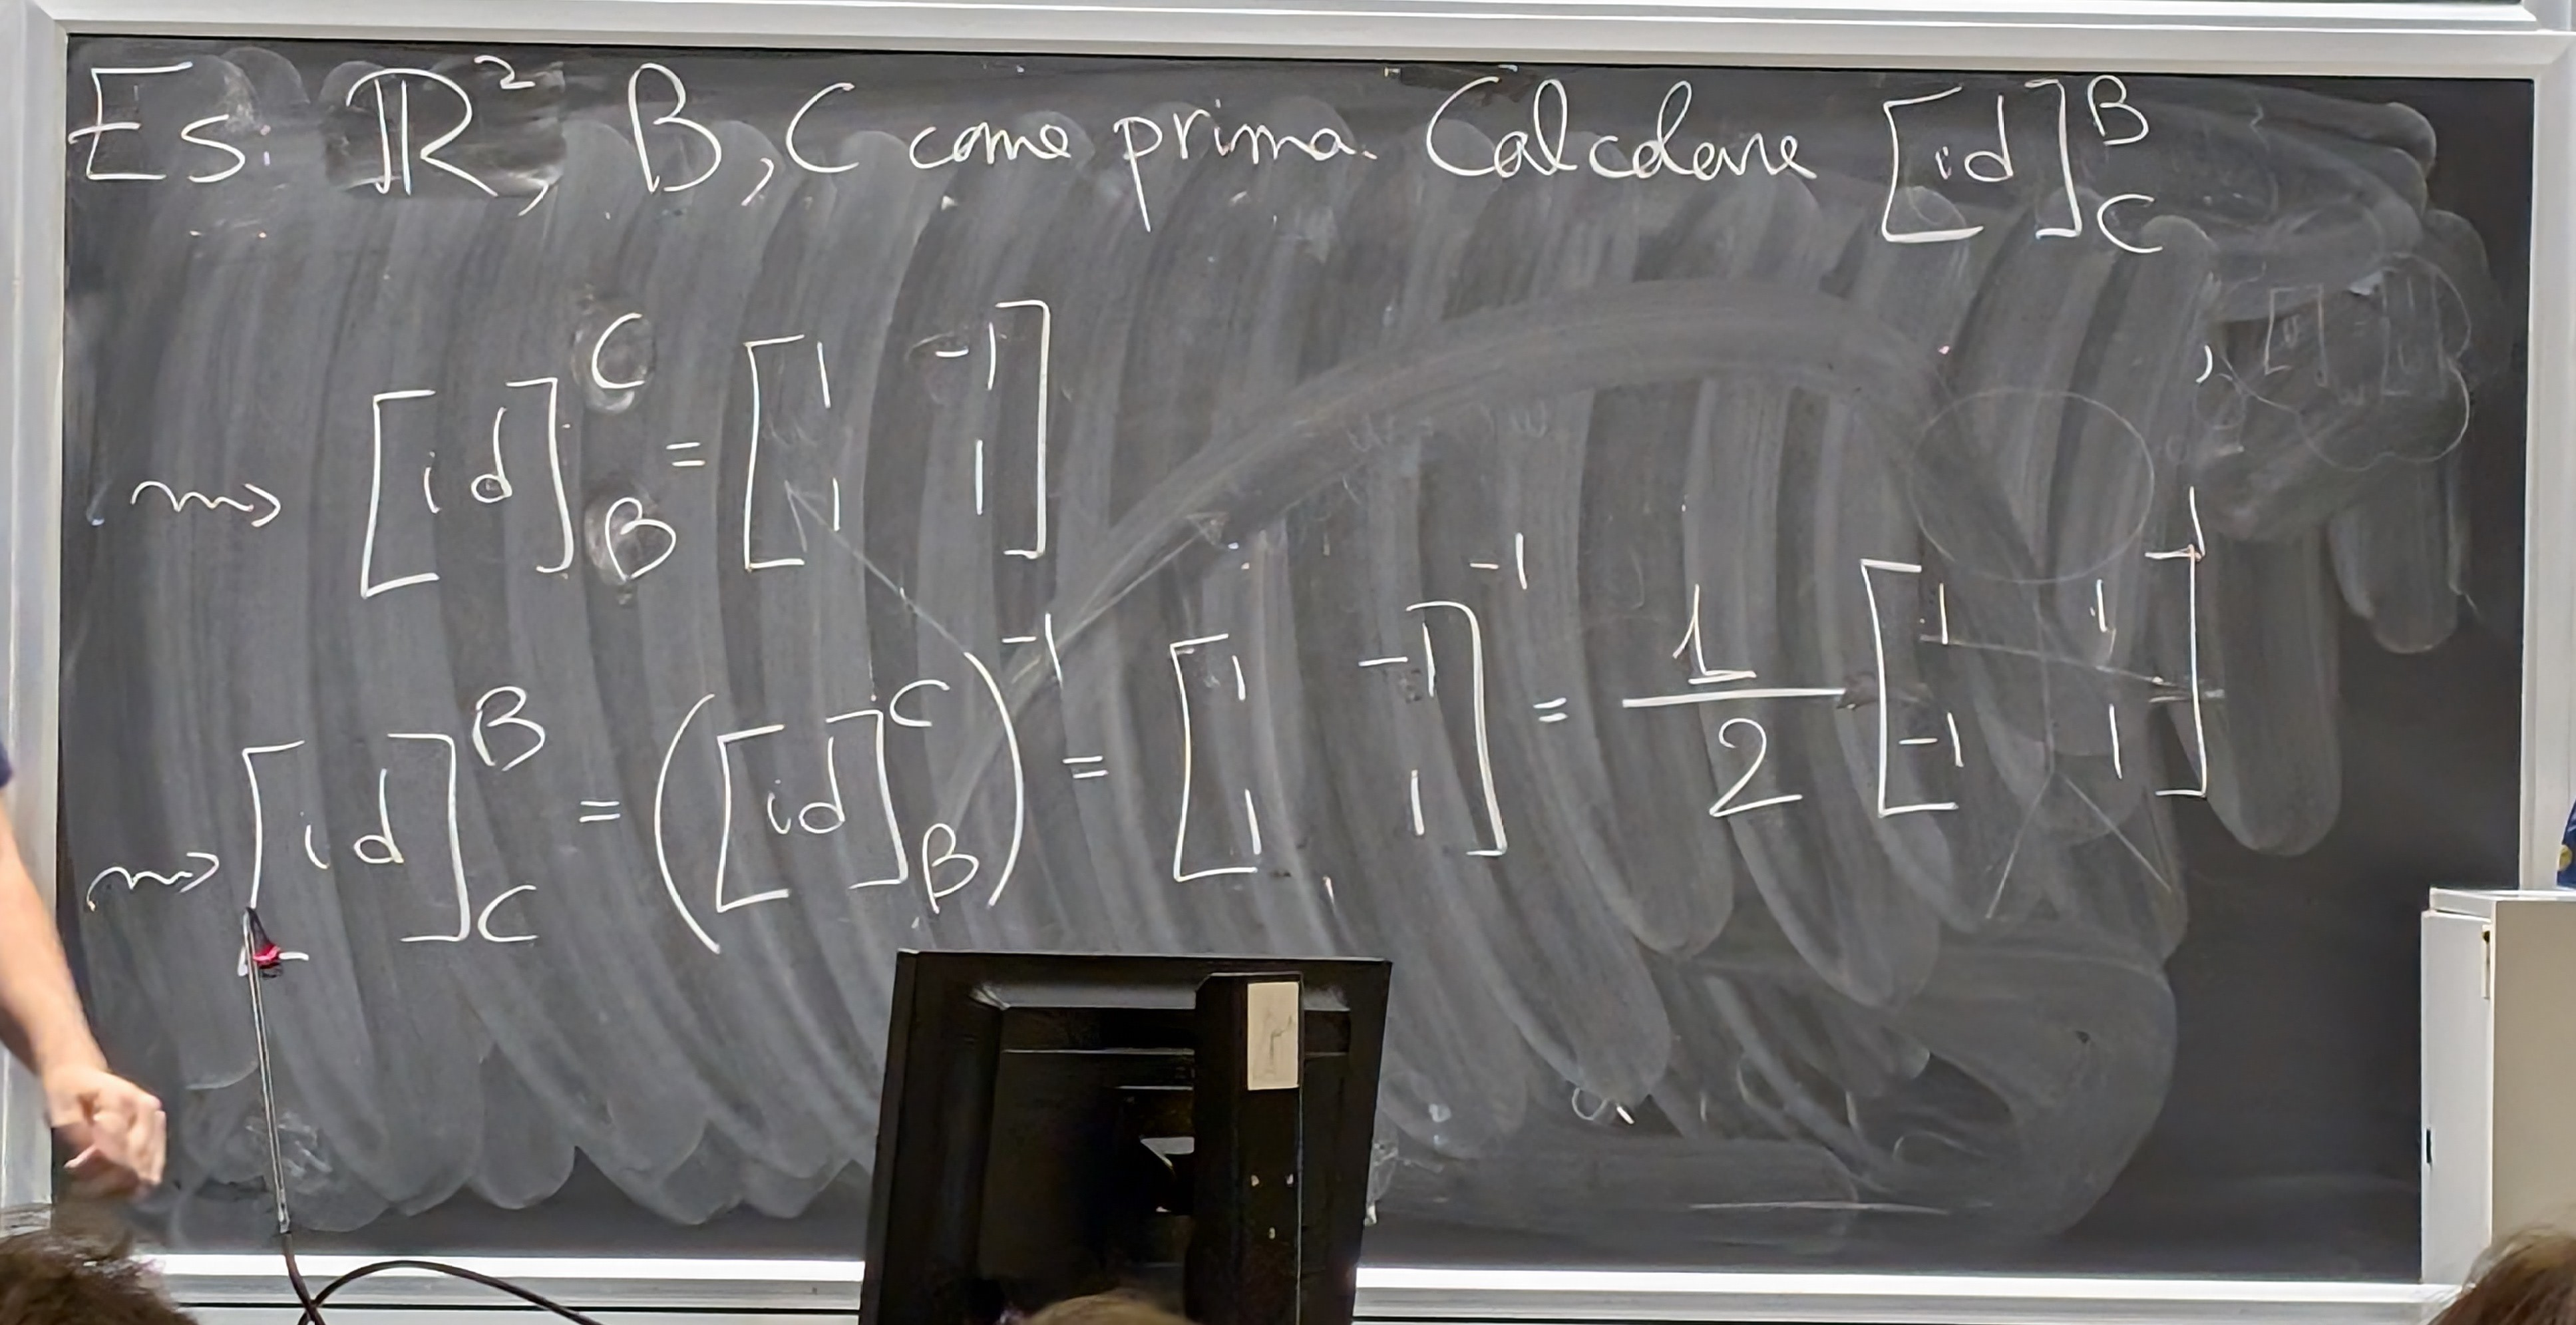 Es: ℝ², B, C come prima. Calcolare [id]^B_C
⇝ [id]^C_B = [1 -1; 1 1]
⇝ [id]^B_C = ([id]^C_B)^-1 = [1 -1; 1 1]^-1 = 1/2 [1 1; -1 1]